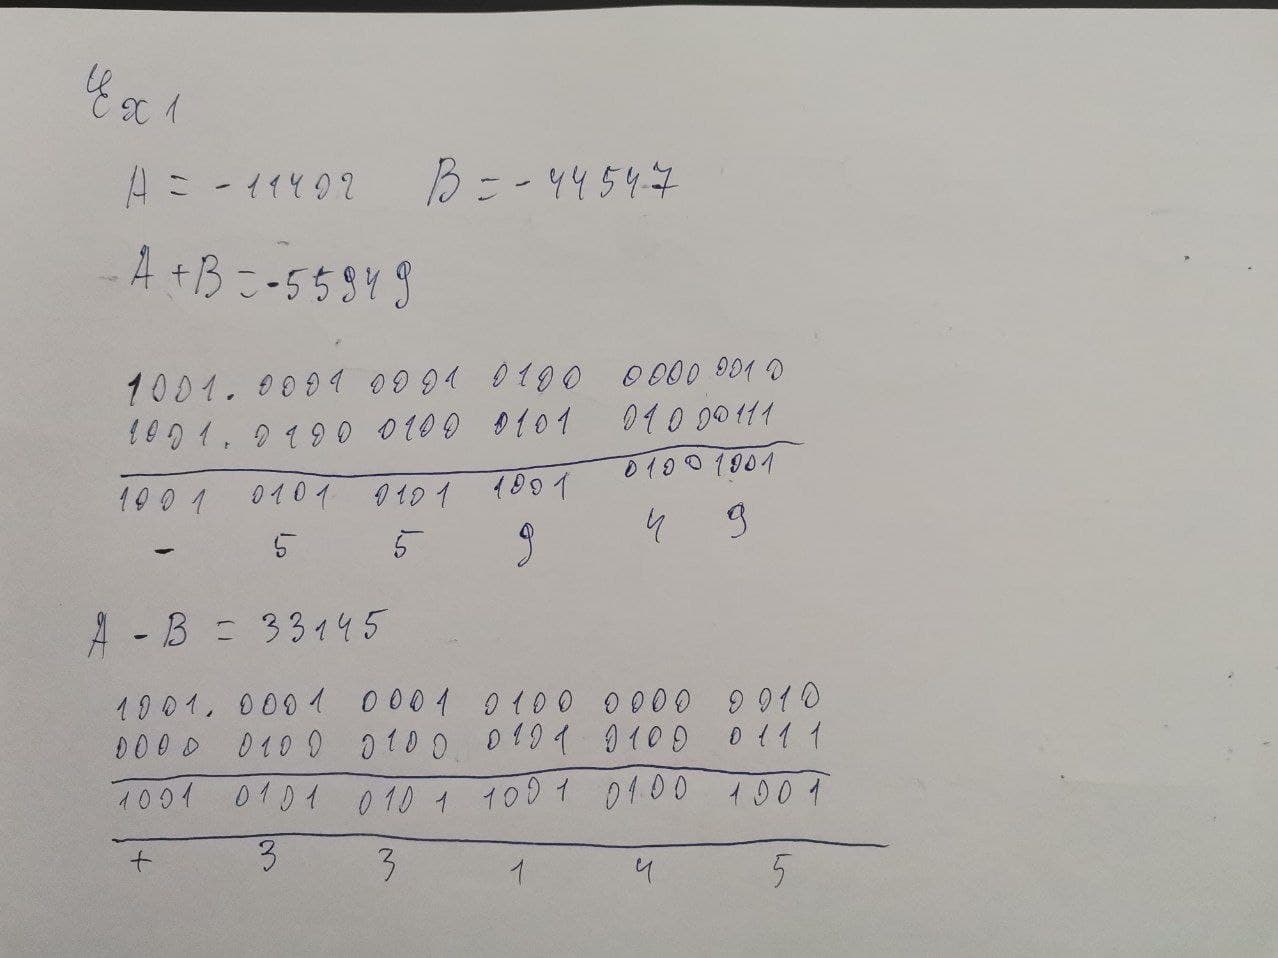 Ex 1
A = -11402 B = -44547
A + B = -55949
1001. 0001 0001 0100 0000 0010
1001. 0100 0100 0101 0100 0111
1001 0101 0101 1001 0100 1001
- 5 5 9 4 9
A - B = 33145
1001. 0001 0001 0100 0000 0010
0000 0100 0100 0101 0100 0111
1001 0101 0101 1001 0100 1001
+ 3 3 1 4 5